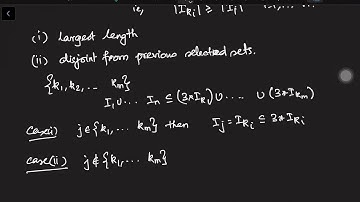 ie, |I_{k_i}| ≥ |I_j|
(i) largest length
(ii) disjoint from previous selected sets.
{k_1, k_2, ... k_m}
I_1 ∪ ... I_n ⊆ (3*I_{k_1}) ∪ ... ∪ (3*I_{k_m})
case(i) j ∈ {k_1, ... k_m} then I_j = I_{k_i} ⊆ 3*I_{k_i}
case(ii) j ∉ {k_1, ... k_m}